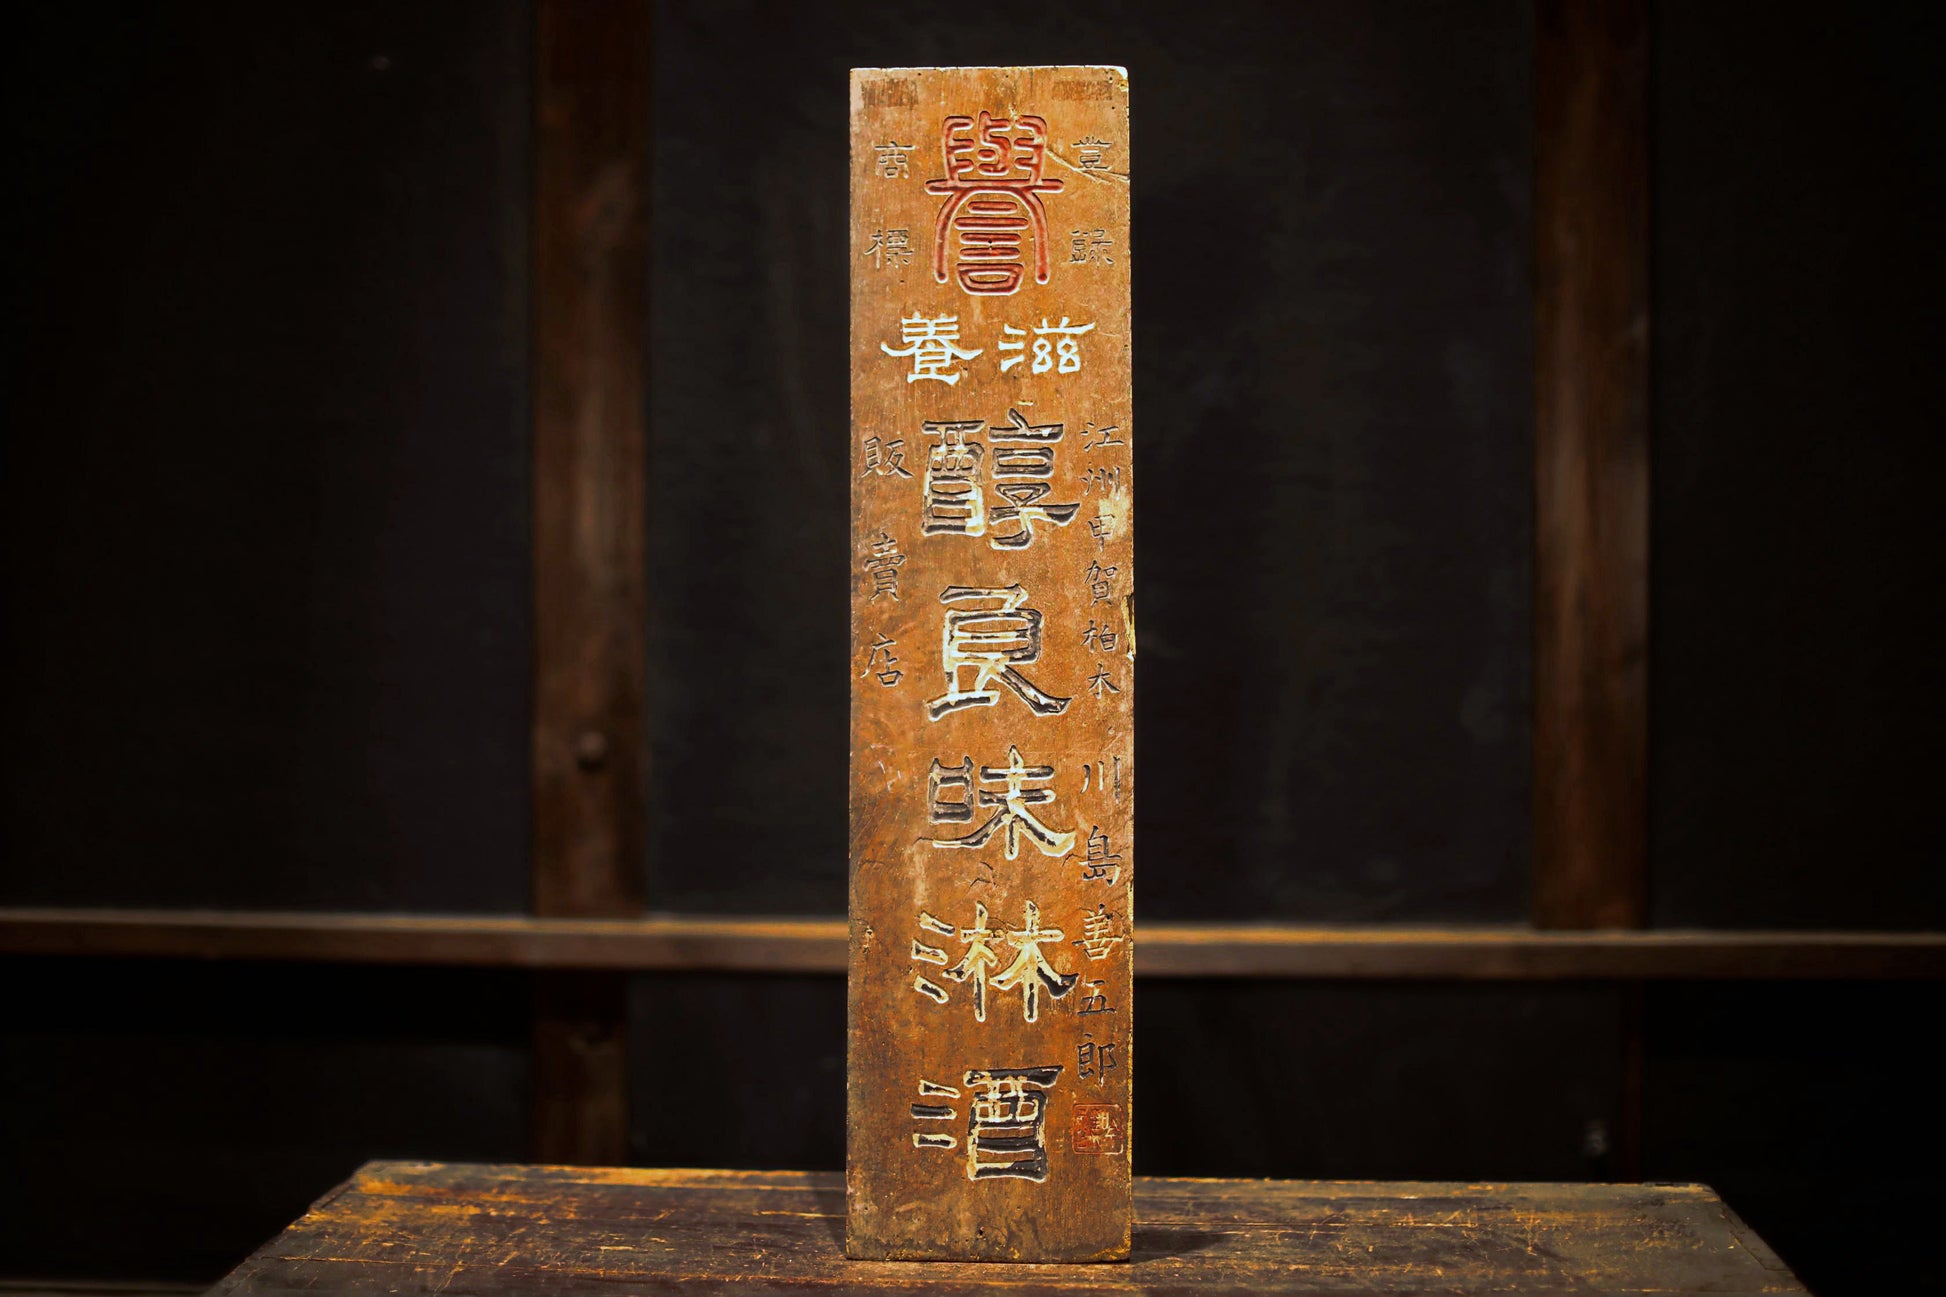 登錄
譽
商標
滋養
醇良味淋酒
江州甲賀柏木
川島善五郎
販賣店